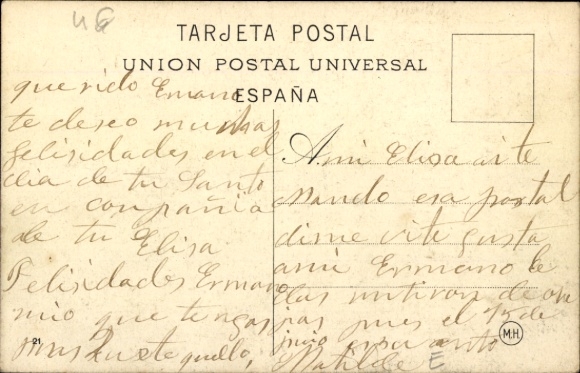 TARJETA POSTAL
UNION POSTAL UNIVERSAL
ESPAÑA
querido Ermano
te deseo muchas
felisidades en el
dia de tu Santo
en conpañia
de tu Elisa
Felisidades Ermano
mio que tengas
A mi Elisa ai te
mando esa postal
dime si te gusta
a mi Ermano le
das un tiron de ore
jas pues el 15 de
Matilde E
21
M.H